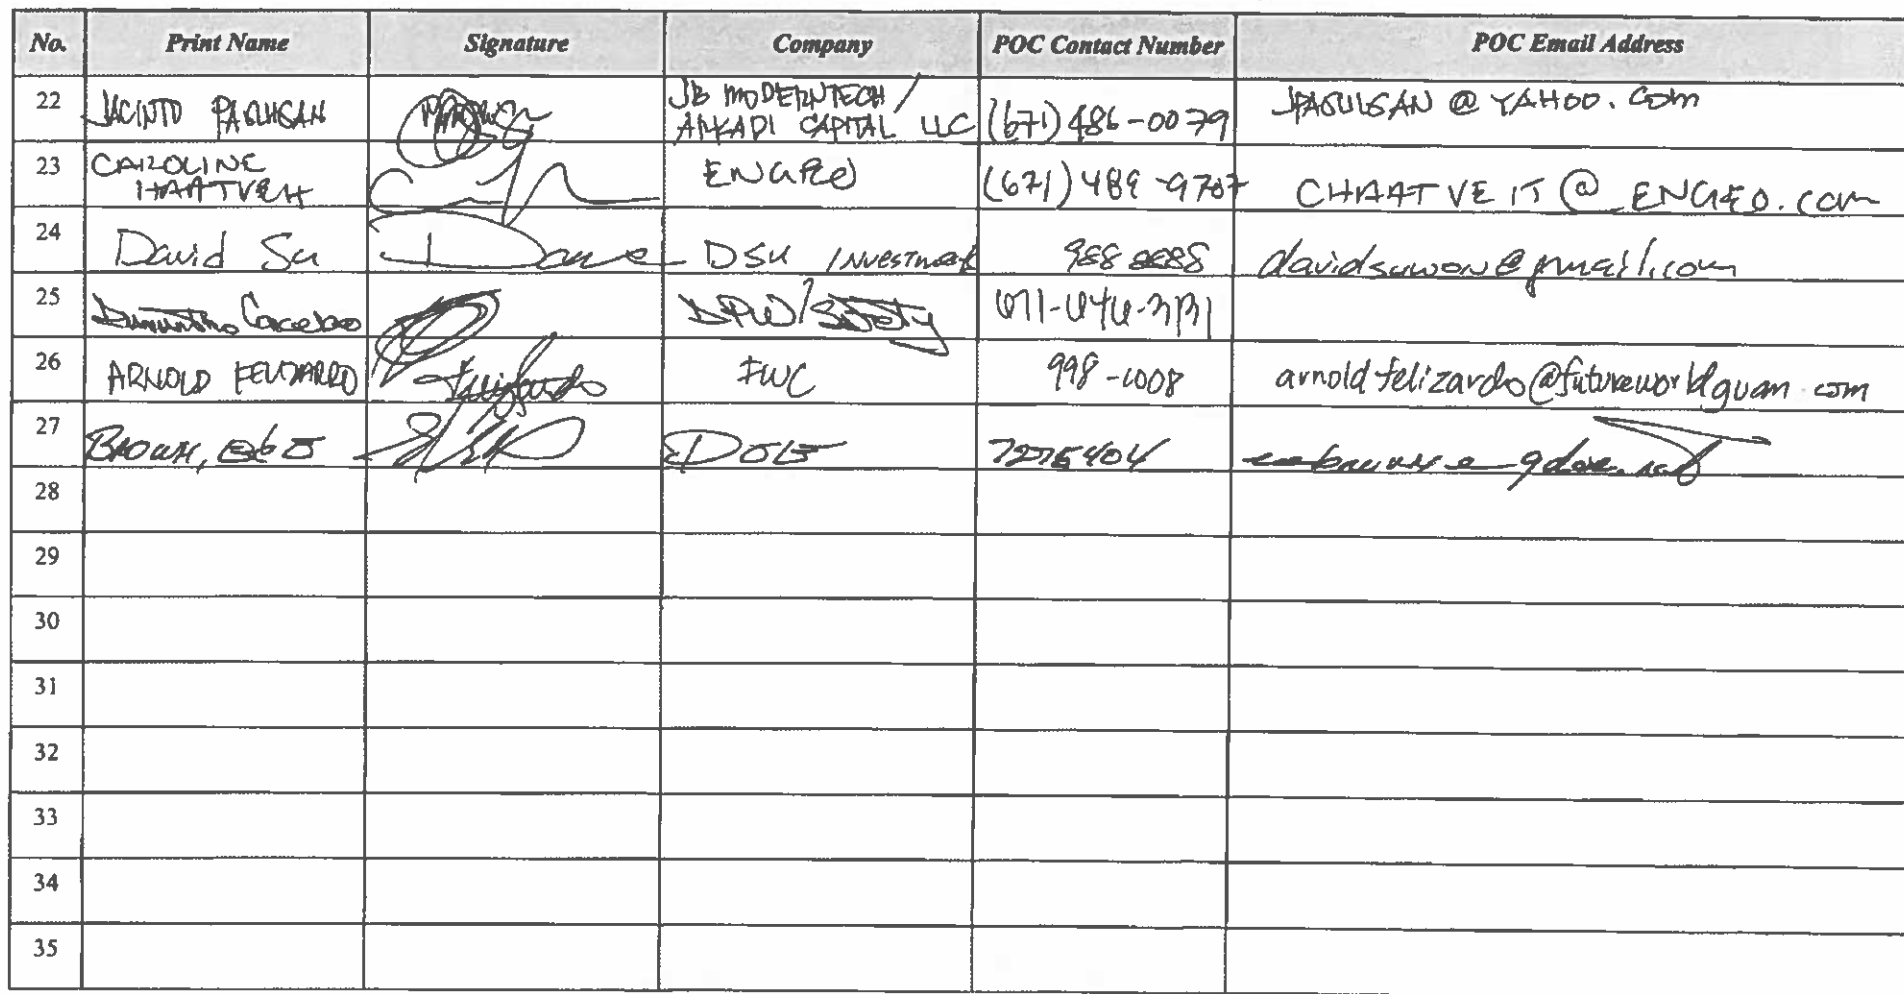 No. Print Name Signature Company POC Contact Number POC Email Address
22 JACINTO PAGULIGAN JB MODERNTECH / (671) 486-0079 JPAGULIGAN @ YAHOO.COM
ARKADI CAPITAL LLC
23 CAROLINE ENGEO (671) 489-9707 CHAATVEIT @ ENGEO.com
HAATVEIT
24 David Su Dave DSU INVESTMENT 988 8888 davidsuwon@gmail.com
25 DPW/Safety
26 ARNOLD FELIZARDO FWC 998-1008 arnoldfelizardo@futureworldguam.com
27 BROWN, DOE 7275404
28
29
30
31
32
33
34
35